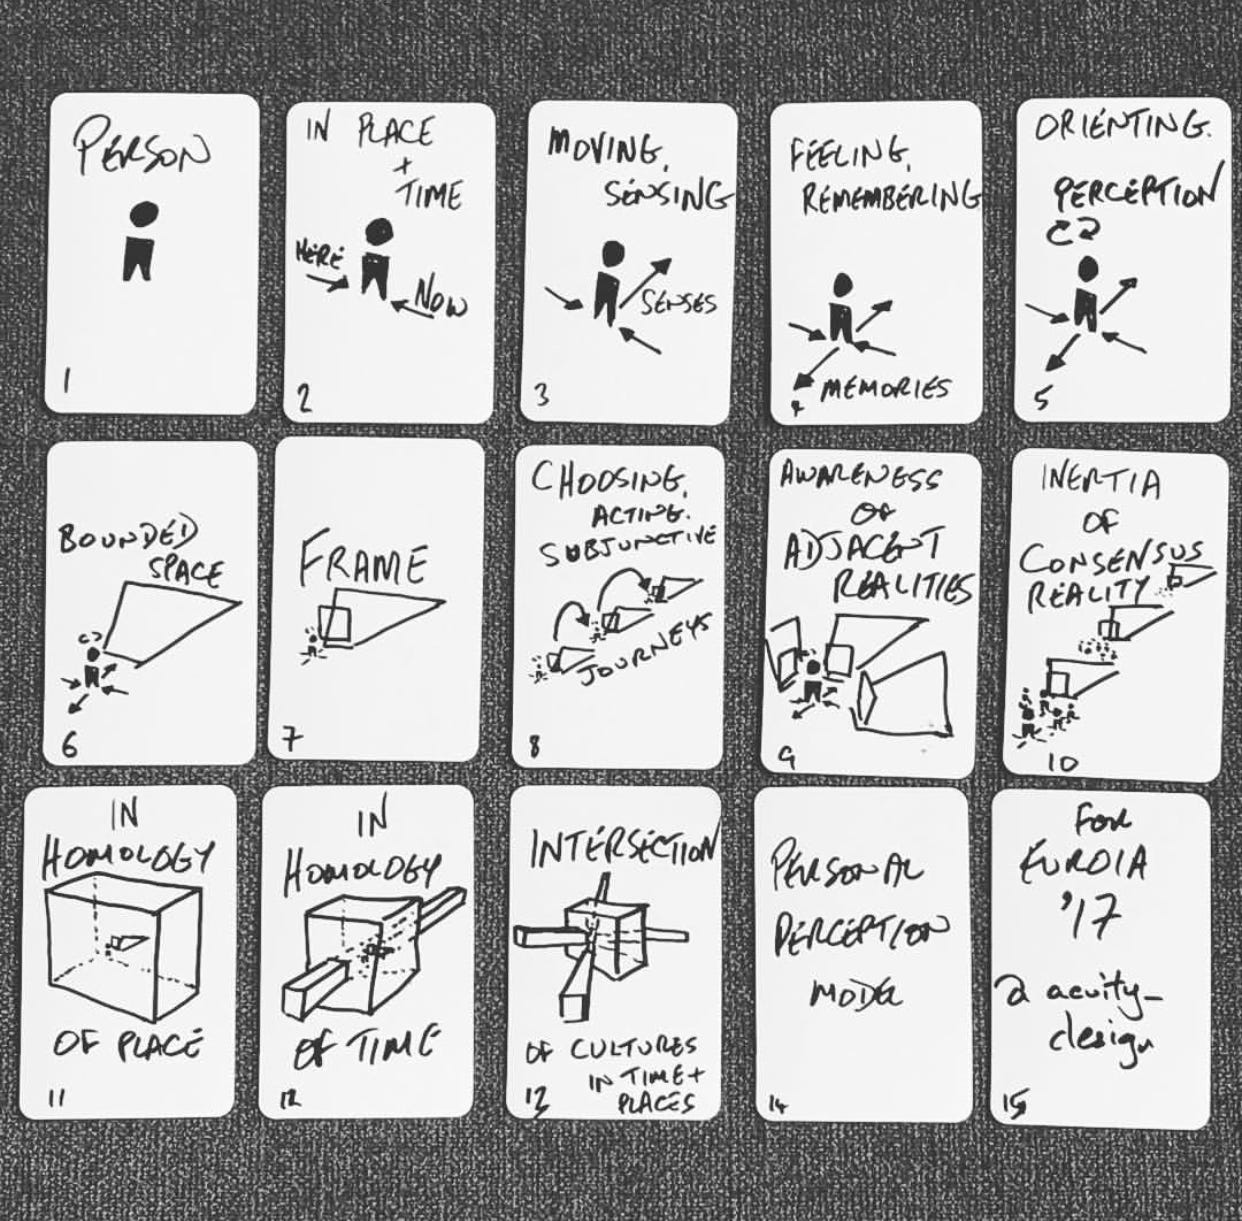 PERSON
1
IN PLACE
+
TIME
HERE
NOW
2
MOVING,
SENSING
SENSES
3
FEELING,
REMEMBERING
MEMORIES
4
ORIENTING.
PERCEPTION
5
BOUNDED
SPACE
6
FRAME
7
CHOOSING,
ACTING.
SUBJUNCTIVE
JOURNEYS
8
AWARENESS
OF
ADJACENT
REALITIES
9
INERTIA
OF
CONSENSUS
REALITY
10
IN
HOMOLOGY
OF PLACE
11
IN
HOMOLOGY
OF TIME
12
INTERSECTION
OF CULTURES
IN TIME+
PLACES
13
PERSONAL
PERCEPTION
MODEL
14
FOR
EUROIA
'17
@ acuity-
design
15